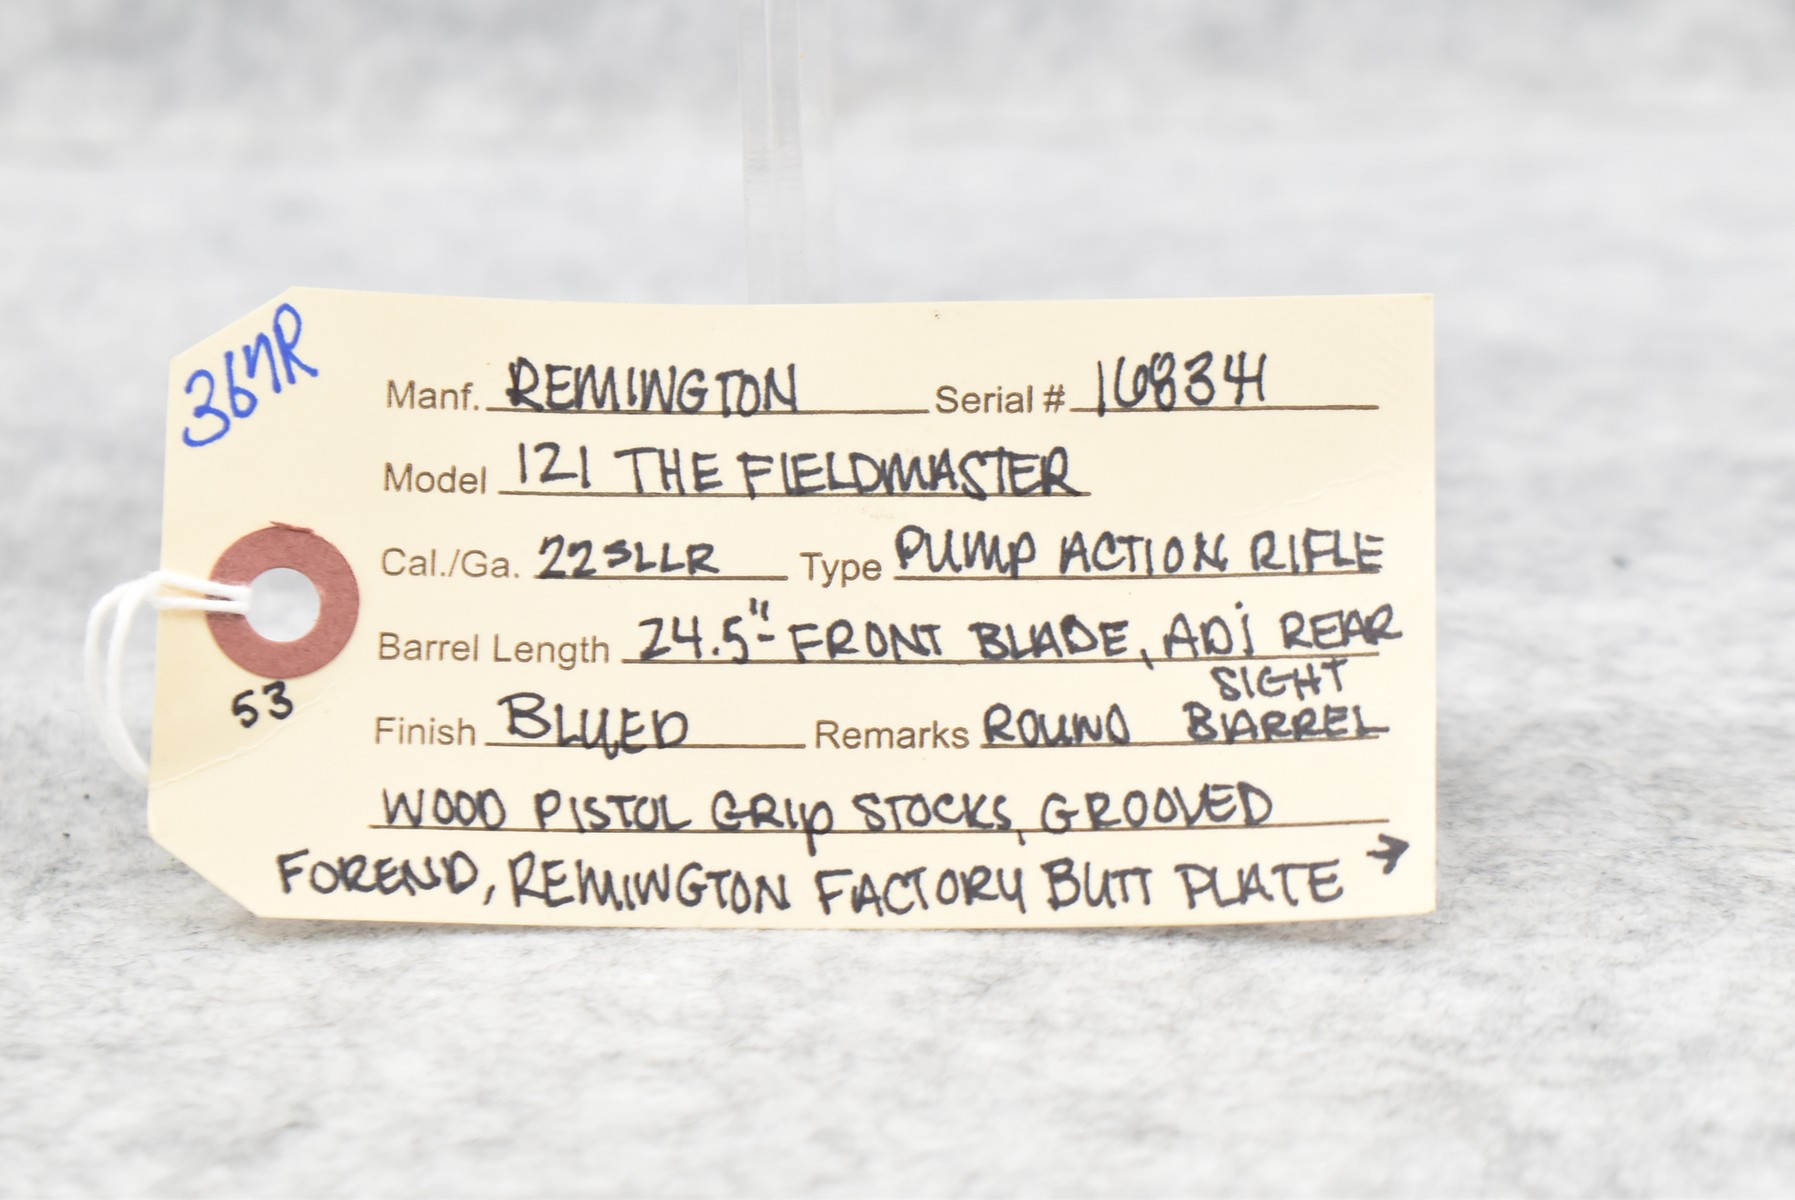 367R
Manf. REMINGTON Serial # 168341
Model 121 THE FIELDMASTER
Cal./Ga. 22SLLR Type PUMP ACTION RIFLE
Barrel Length 24.5"- FRONT BLADE, ADJ REAR
SIGHT
53
Finish BLUED Remarks ROUND BARREL
WOOD PISTOL GRIP STOCKS, GROOVED
FOREND, REMINGTON FACTORY BUTT PLATE →